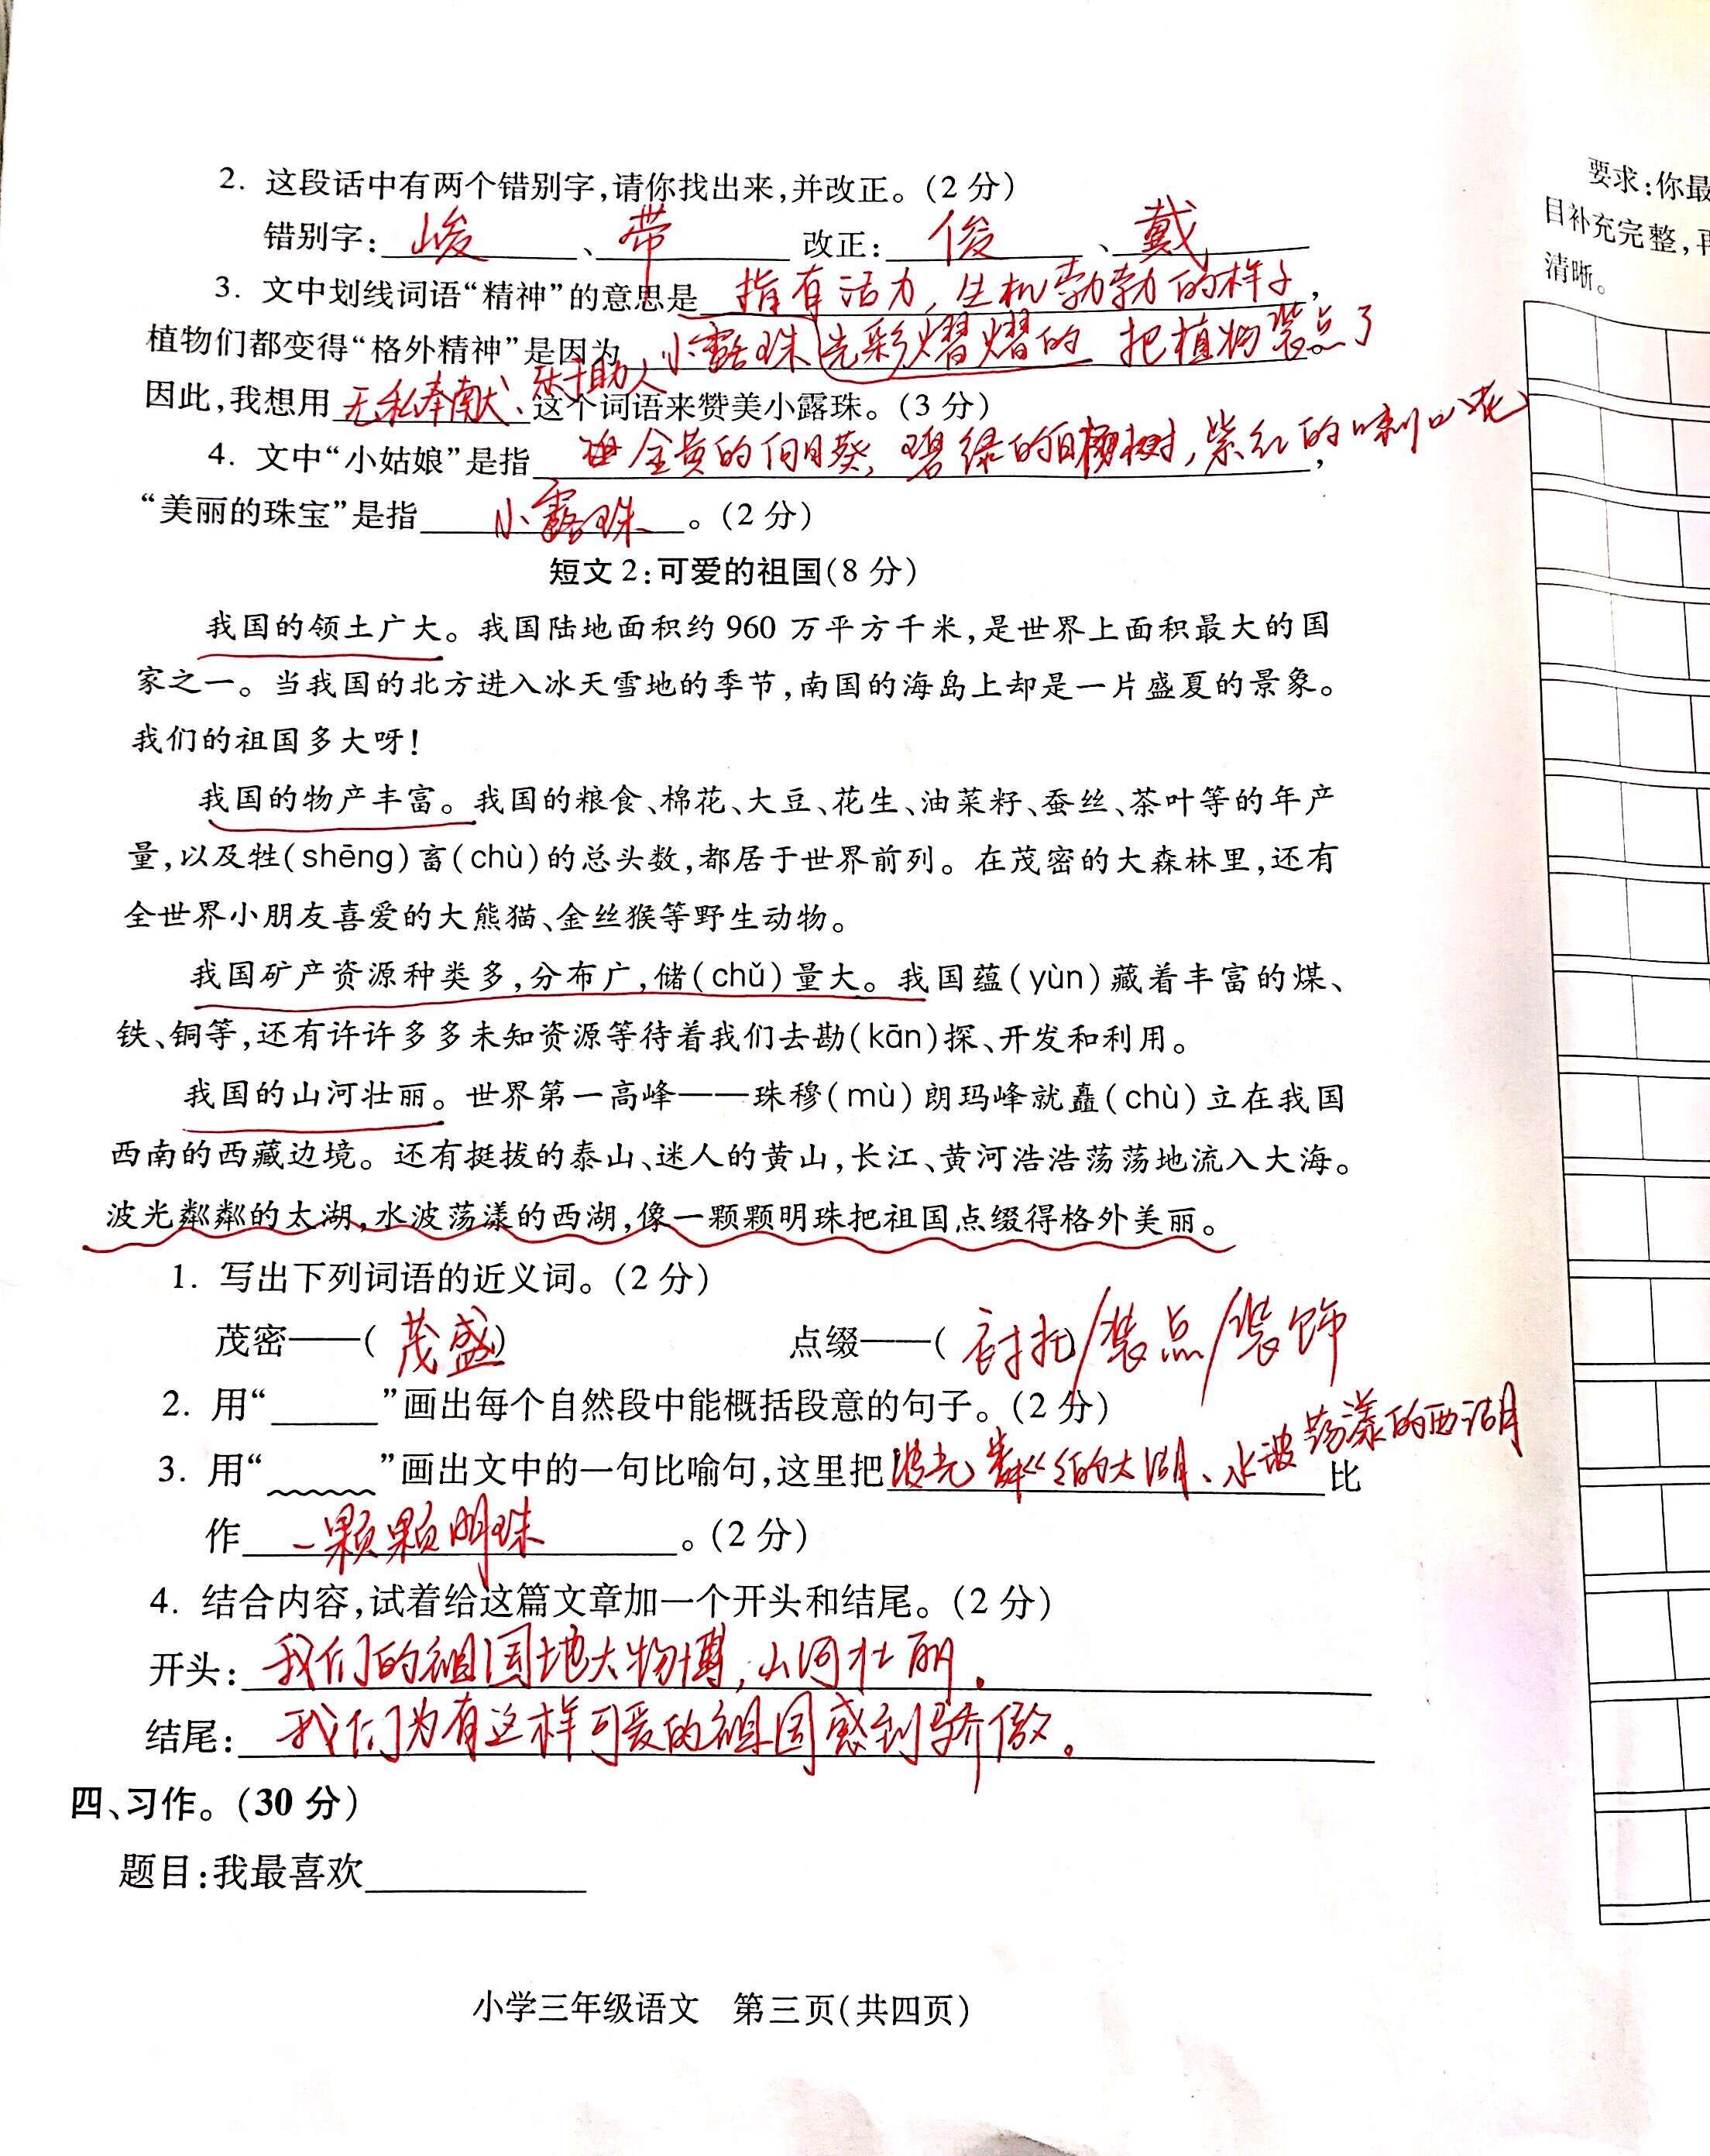 2. 这段话中有两个错别字,请你找出来,并改正。(2分)
错别字: 峻 、 带 改正: 俊 、 戴
3. 文中划线词语“精神”的意思是 指有活力,生机勃勃的样子 ,
植物们都变得“格外精神”是因为 小露珠光彩熠熠的 把植物装点了 。
因此,我想用 无私奉献、乐于助人 这个词语来赞美小露珠。(3分)
4. 文中“小姑娘”是指 金黄的向日葵,碧绿的白杨树,紫红的喇叭花 ,
“美丽的珠宝”是指 小露珠 。(2分)
短文2:可爱的祖国(8分)
我国的领土广大。我国陆地面积约960万平方千米,是世界上面积最大的国
家之一。当我国的北方进入冰天雪地的季节,南国的海岛上却是一片盛夏的景象。
我们的祖国多大呀!
我国的物产丰富。我国的粮食、棉花、大豆、花生、油菜籽、蚕丝、茶叶等的年产
量,以及牲(shēng)畜(chù)的总头数,都居于世界前列。在茂密的大森林里,还有
全世界小朋友喜爱的大熊猫、金丝猴等野生动物。
我国矿产资源种类多,分布广,储(chǔ)量大。我国蕴(yùn)藏着丰富的煤、
铁、铜等,还有许许多多未知资源等待着我们去勘(kān)探、开发和利用。
我国的山河壮丽。世界第一高峰——珠穆(mù)朗玛峰就矗(chù)立在我国
西南的西藏边境。还有挺拔的泰山、迷人的黄山,长江、黄河浩浩荡荡地流入大海。
波光粼粼的太湖,水波荡漾的西湖,像一颗颗明珠把祖国点缀得格外美丽。
1. 写出下列词语的近义词。(2分)
茂密——( 茂盛 ) 点缀——( 衬托/装点/装饰
2. 用“______”画出每个自然段中能概括段意的句子。(2分)
3. 用“﹏﹏﹏”画出文中的一句比喻句,这里把 波光粼粼的太湖、水波荡漾的西湖 比
作 一颗颗明珠 。(2分)
4. 结合内容,试着给这篇文章加一个开头和结尾。(2分)
开头: 我们的祖国地大物博,山河壮丽。
结尾: 我们为有这样可爱的祖国感到骄傲。
四、习作。(30分)
题目:我最喜欢______
小学三年级语文 第三页(共四页)
要求:你最
目补充完整,再
清晰。